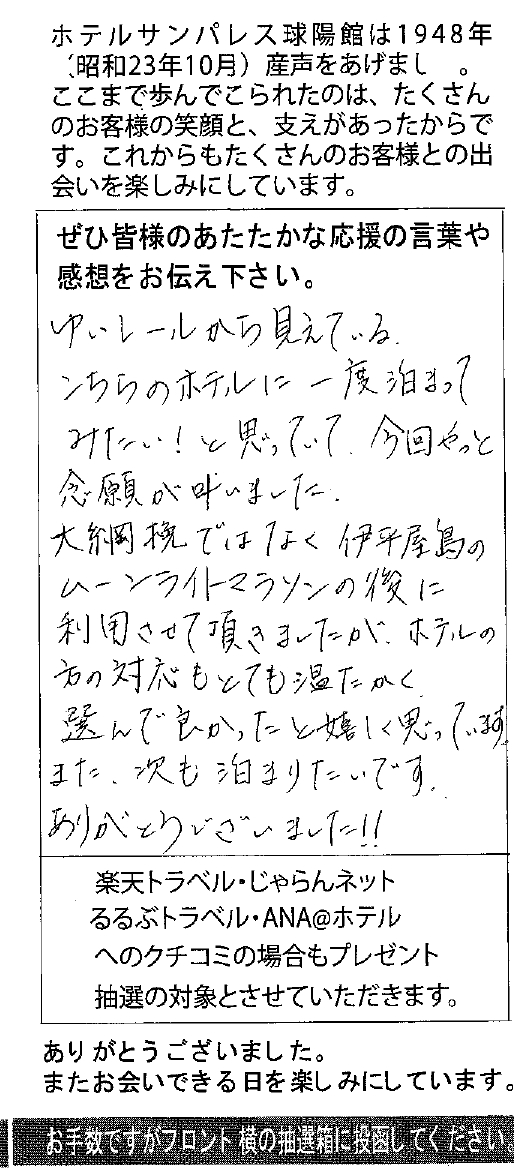 ホテルサンパレス球陽館は1948年
(昭和23年10月)産声をあげまし 。
ここまで歩んでこられたのは、たくさん
のお客様の笑顔と、支えがあったからで
す。これからもたくさんのお客様との出
会いを楽しみにしています。
ぜひ皆様のあたたかな応援の言葉や
感想をお伝え下さい。
ゆいレールから見えている、
こちらのホテルに一度泊まって
みたい!と思っていて、今回やっと
念願が叶いました。
大綱挽ではなく伊平屋島の
ムーンライトマラソンの後に
利用させて頂きましたが、ホテルの
方の対応もとても温たかく、
選んで良かったと嬉しく思っています。
また、次も泊まりたいです。
ありがとうございました!!
楽天トラベル・じゃらんネット
るるぶトラベル・ANA@ホテル
へのクチコミの場合もプレゼント
抽選の対象とさせていただきます。
ありがとうございました。
またお会いできる日を楽しみにしています。
お手数ですがフロント横の抽選箱に投函してください。